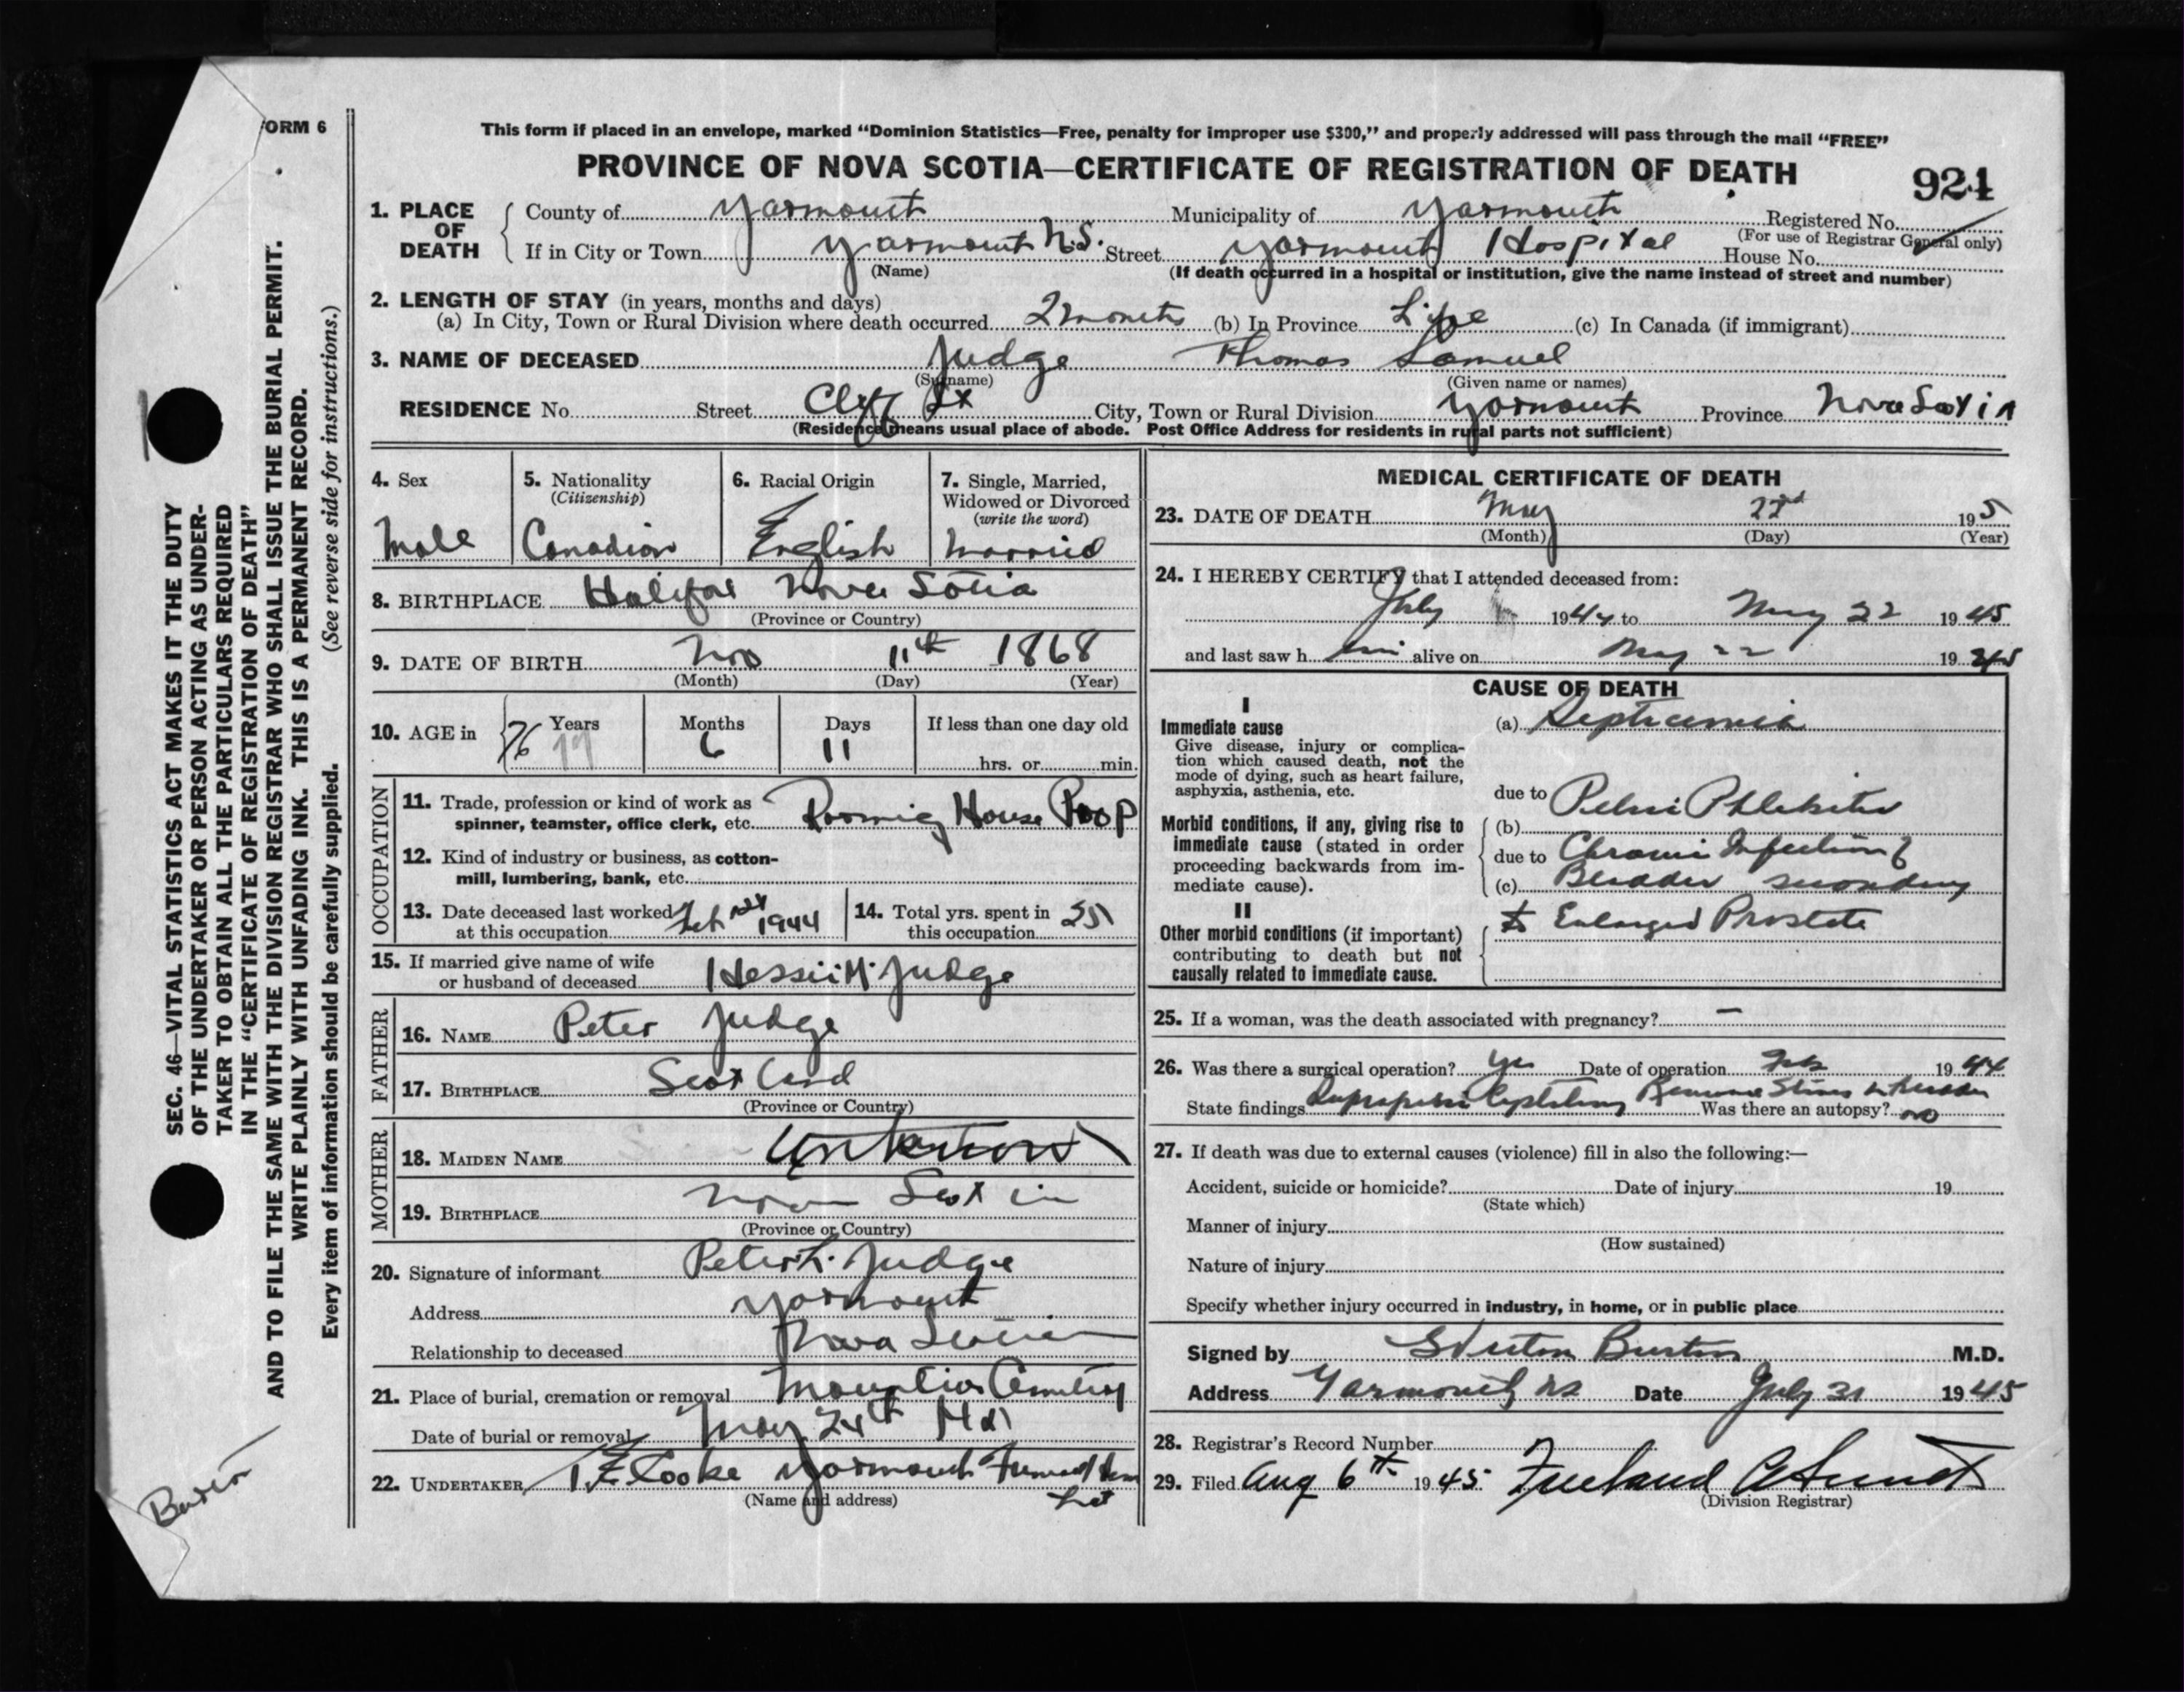 FORM 6
This form if placed in an envelope, marked “Dominion Statistics—Free, penalty for improper use $300,” and properly addressed will pass through the mail “FREE”
PROVINCE OF NOVA SCOTIA—CERTIFICATE OF REGISTRATION OF DEATH
924
1. PLACE OF DEATH
County of Yarmouth Municipality of Yarmouth Registered No.
(For use of Registrar General only)
If in City or Town Yarmouth N.S. Street Yarmouth Hospital House No.
(Name) (If death occurred in a hospital or institution, give the name instead of street and number)
2. LENGTH OF STAY (in years, months and days)
(a) In City, Town or Rural Division where death occurred 2 months (b) In Province Life (c) In Canada (if immigrant)
3. NAME OF DECEASED Judge Thomas Samuel
(Surname) (Given name or names)
RESIDENCE No. Street Cliff St City, Town or Rural Division Yarmouth Province Nova Scotia
(Residence means usual place of abode. Post Office Address for residents in rural parts not sufficient)
4. Sex
Male
5. Nationality
(Citizenship)
Canadian
6. Racial Origin
English
7. Single, Married,
Widowed or Divorced
(write the word)
Married
8. BIRTHPLACE Halifax Nova Sotia
(Province or Country)
9. DATE OF BIRTH Nov 11th 1868
(Month) (Day) (Year)
10. AGE in Years Months Days If less than one day old
76 77 6 11 hrs. or min.
OCCUPATION
11. Trade, profession or kind of work as
spinner, teamster, office clerk, etc. Rooming House Prop
12. Kind of industry or business, as cotton-
mill, lumbering, bank, etc.
13. Date deceased last worked
at this occupation Feb 1944
14. Total yrs. spent in
this occupation
15. If married give name of wife
or husband of deceased Hessie M. Judge
FATHER
16. NAME Peter Judge
17. BIRTHPLACE Scotland
(Province or Country)
MOTHER
18. MAIDEN NAME Unknown
19. BIRTHPLACE Nova Scotia
(Province or Country)
20. Signature of informant Peter L. Judge
Address Yarmouth
Relationship to deceased Nova Scotia
21. Place of burial, cremation or removal Mountain Cemetery
Date of burial or removal May 24th
22. UNDERTAKER Cooke Yarmouth Funeral Home
Ltd
(Name and address)
MEDICAL CERTIFICATE OF DEATH
23. DATE OF DEATH May 22nd 195
(Month) (Day) (Year)
24. I HEREBY CERTIFY that I attended deceased from:
July 1944 to May 22 1945
and last saw him alive on May 22 1945
CAUSE OF DEATH
I
Immediate cause
Give disease, injury or complica-
tion which caused death, not the
mode of dying, such as heart failure,
asphyxia, asthenia, etc.
(a) Septicemia
due to Pelvic Phlebitis
Morbid conditions, if any, giving rise to
immediate cause (stated in order
proceeding backwards from im-
mediate cause).
(b)
due to Chronic Infection of
(c) Bladder secondary
II
Other morbid conditions (if important)
contributing to death but not
causally related to immediate cause.
to Enlarged Prostate
25. If a woman, was the death associated with pregnancy? —
26. Was there a surgical operation? Yes Date of operation Feb 1944
State findings Suprapubic Cystotomy Removal Stones in bladder Was there an autopsy? no
27. If death was due to external causes (violence) fill in also the following:—
Accident, suicide or homicide? Date of injury 19
(State which)
Manner of injury
(How sustained)
Nature of injury
Specify whether injury occurred in industry, in home, or in public place
Signed by Burton M.D.
Address Yarmouth NS Date July 31 1945
28. Registrar's Record Number
29. Filed Aug 6th 1945
(Division Registrar)
SEC. 46—VITAL STATISTICS ACT MAKES IT THE DUTY
OF THE UNDERTAKER OR PERSON ACTING AS UNDER-
TAKER TO OBTAIN ALL THE PARTICULARS REQUIRED
IN THE “CERTIFICATE OF REGISTRATION OF DEATH”
AND TO FILE THE SAME WITH THE DIVISION REGISTRAR WHO SHALL ISSUE THE BURIAL PERMIT.
WRITE PLAINLY WITH UNFADING INK. THIS IS A PERMANENT RECORD.
Every item of information should be carefully supplied. (See reverse side for instructions.)
Burton